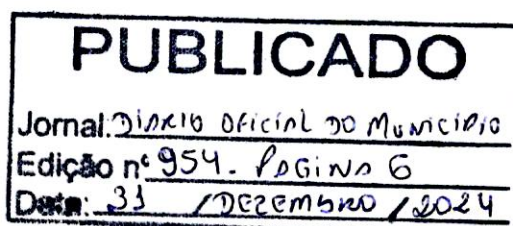 PUBLICADO
Jornal: DIÁRIO OFICIAL DO MUNICÍPIO
Edição nº 954. PÁGINA 6
Data: 31 / DEZEMBRO / 2024